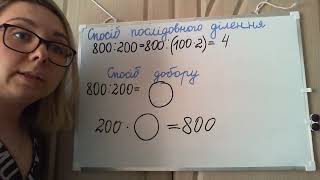 Спосіб послідовного ділення
800:200=800:(100·2)= 4
Спосіб добору
800:200=
200 · = 800